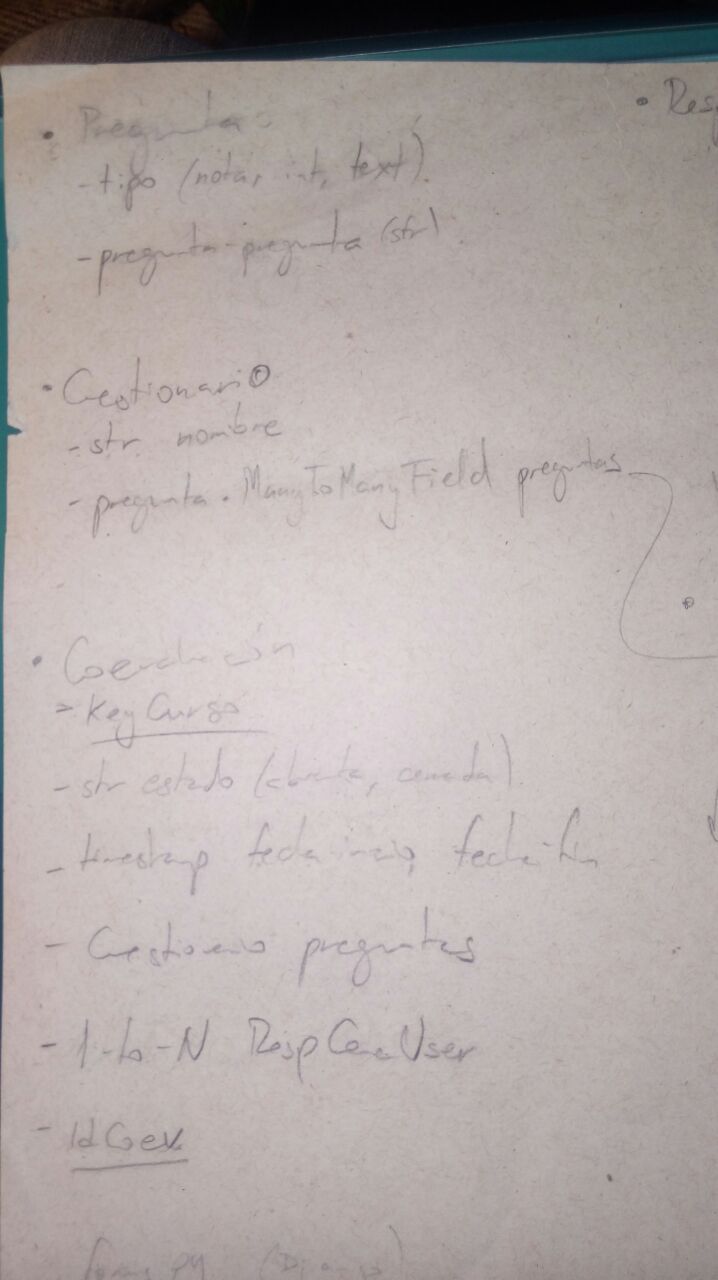 • Pregunta
- tipo (nota, int, text)
- pregunta-pregunta (str)
• Resp
• Cuestionario
- str nombre
- pregunta. ManyToManyField preguntas
• Coevaluación
- Key Curso
- str estado (abierta, cerrada)
- timestamp fecha-inicio, fecha-fin
- Cuestionario preguntas
- 1-to-N Resp User
- Id Coev